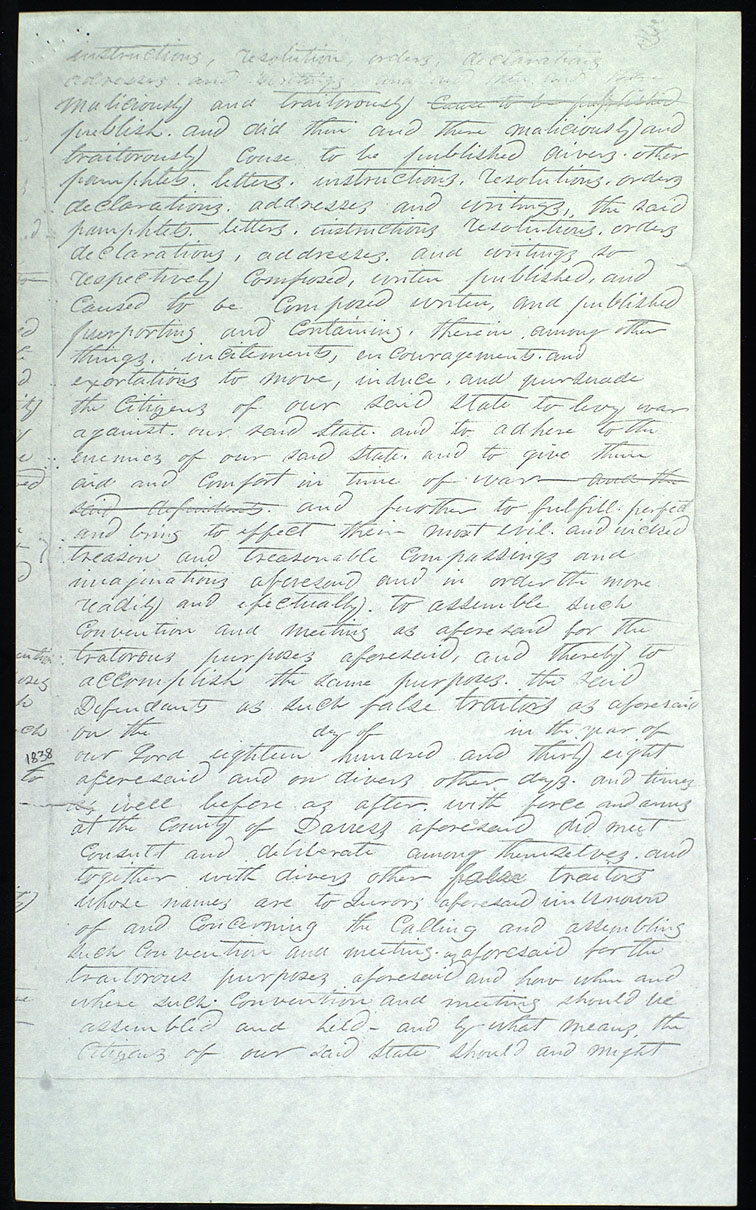 instructions, resolution, orders, declarations
adresses and writings and did then and there
maliciously and traitorously cause to be published
publish. and did then and there maliciously and
traitorously cause to be published divers. other
pamphlets. letters. instructions. resolutions. orders
declarations. addresses and writings, the said
pamphlets. letters. instructions resolutions. orders
declarations, addresses. and writings so
respectively composed, writen published, and
caused to be composed writen, and published
purporting and containing, therein among other
things. incitements, encouragements. and
exortations to move, induce, and pursuade
the Citizens of our said State to levy war
against. our said State. and to adhere to the
enemies of our said State. and to give them
aid and comfort in time of war and the
said defendants. and further to fulfill. perfect
and bring to effect their most evil. and wicked
treason and treasonable compassings and
imaginations aforesaid and in order the more
readily and efectually. to assemble such
Convention and meeting as aforesaid for the
tratorous purposes aforesaid, and thereby to
accomplish the same purposes. the said
Defendants as such false traitors as aforesaid
on the day of in the year of
our Lord eighteen hundred and thirty eight
1838
aforesaid and on divers other days. and times
as well before as after. with force and arms
at the County of Daviess aforesaid did meet
Consult and deliberate among themselves. and
together with divers other false traitors
whose names are to Jurors aforesaid unknown
of and concerning the Calling and assembling
such Convention and meeting as aforesaid for the
traitorous purposes aforesaid and how when and
where such. Convention and meeting should be
assembled and held - and by what means the
Citizens of our said State should and might